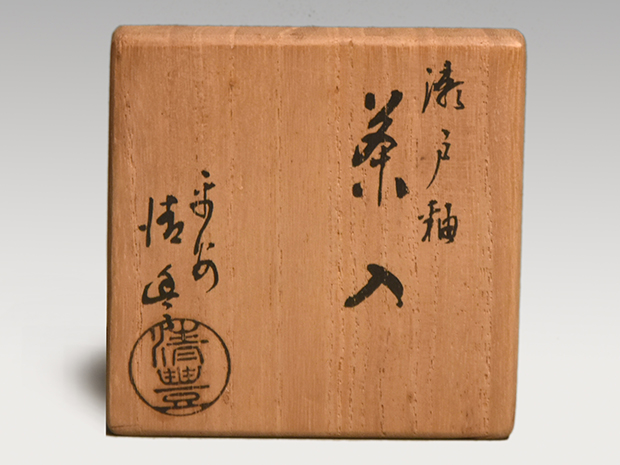 瀬戸釉
茶入
平安
清
清豐